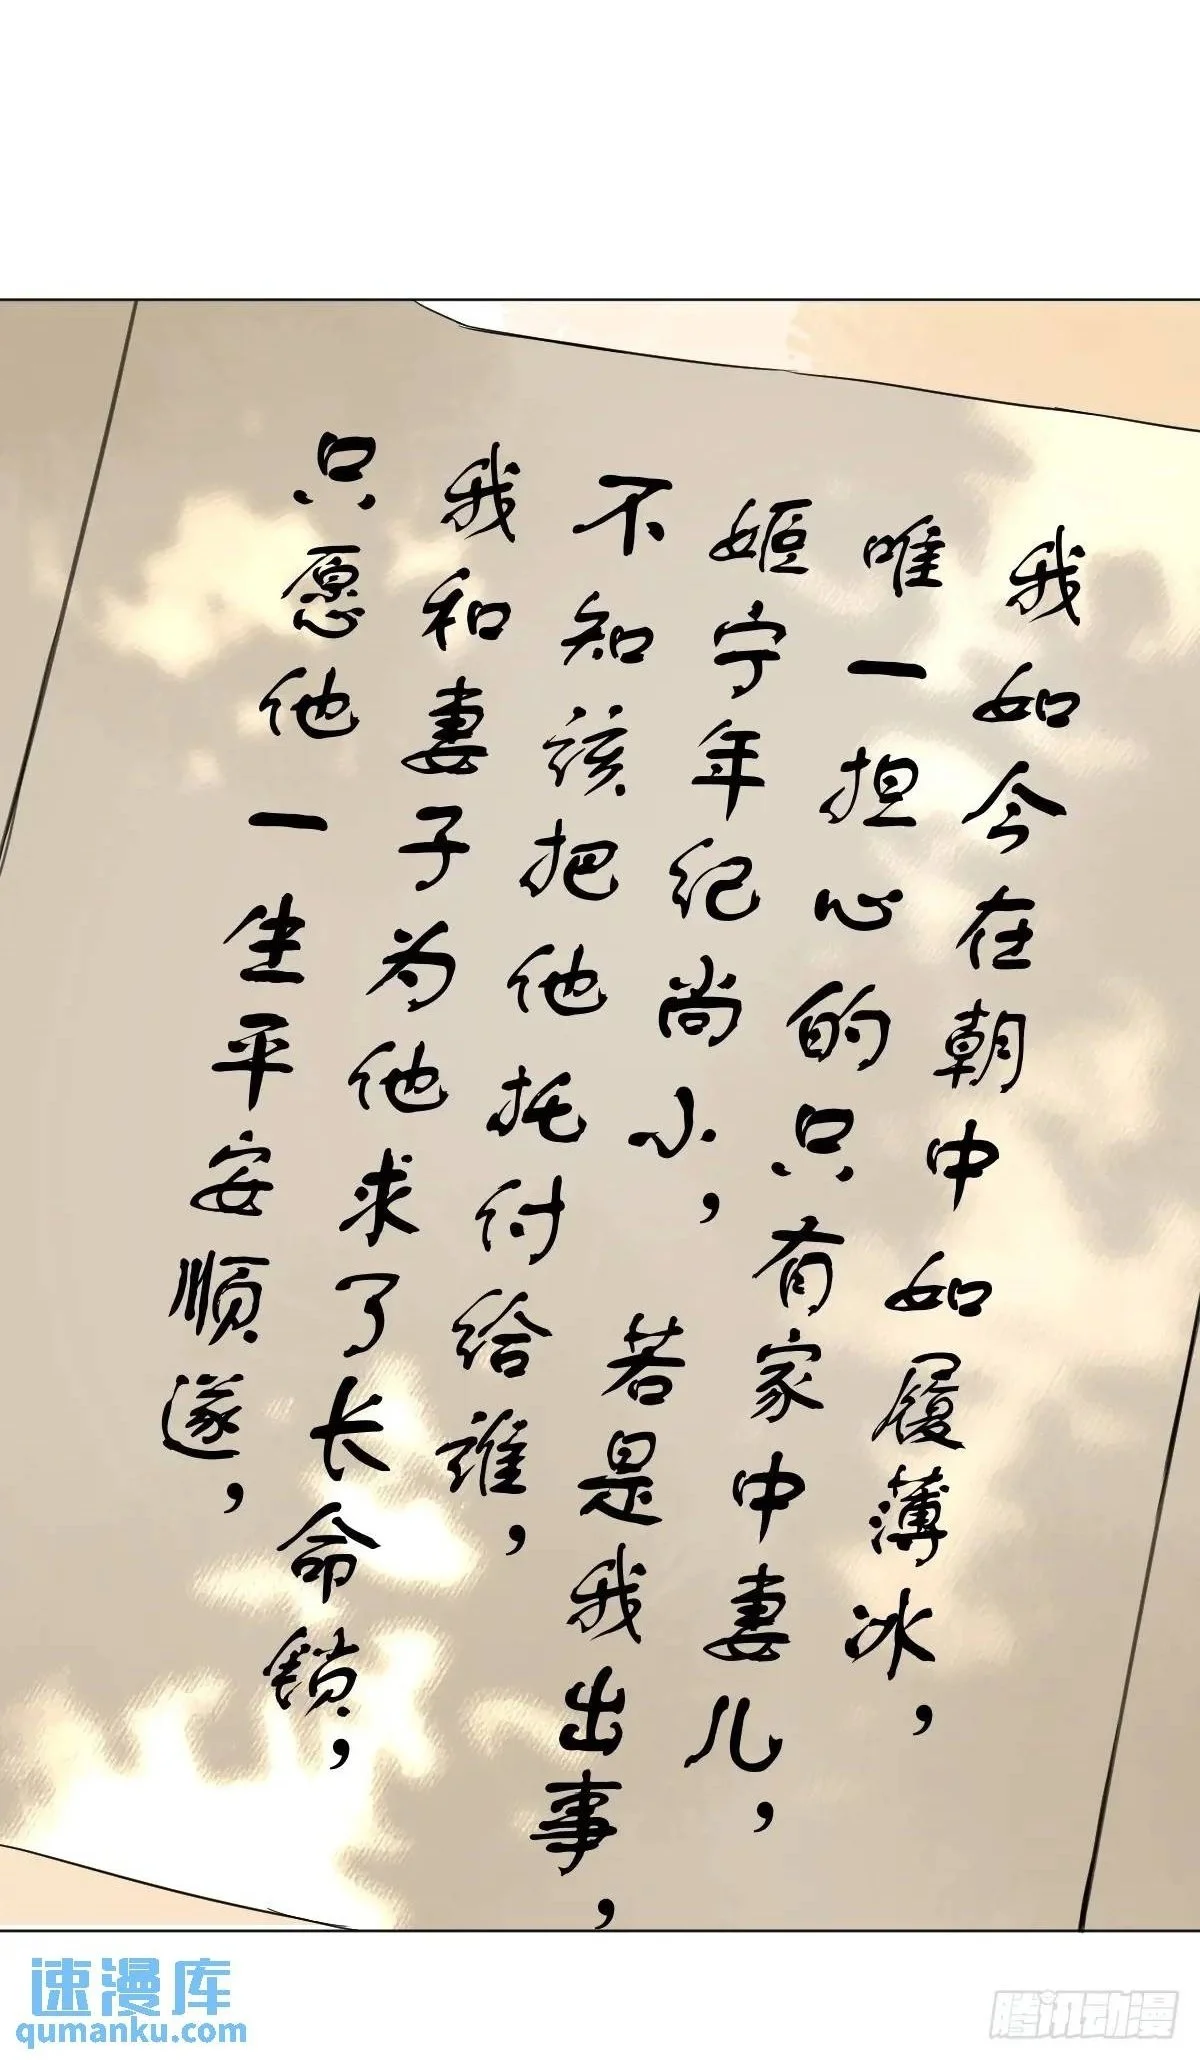 我如今在朝中如履薄冰，
唯一担心的只有家中妻儿，
姬宁年纪尚小，若是我出事，
不知该把他托付给谁，
我和妻子为他求了长命锁，
只愿他一生平安顺遂，
速漫库
qumanku.com
腾讯动漫